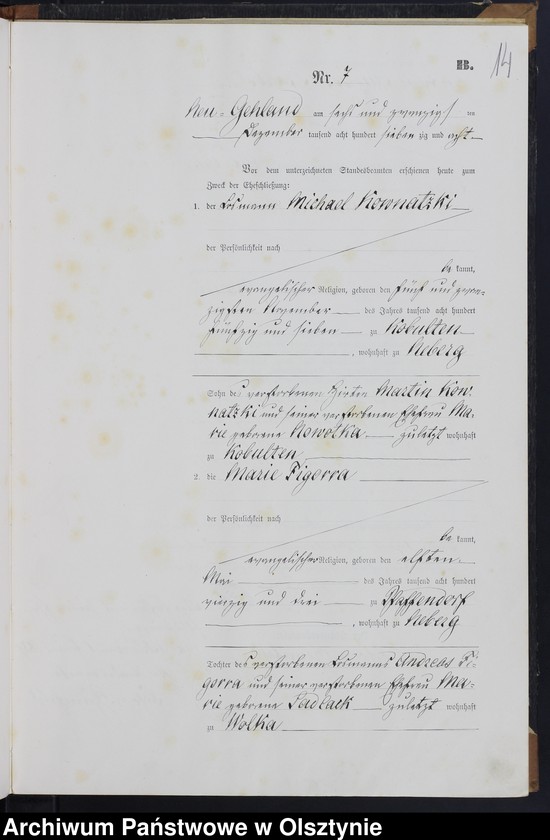 B.
14
Nr. 7
Neu-Gehland am sechs und zwanzigsten
Dezember tausend acht hundert siebenzig und acht
Vor dem unterzeichneten Standesbeamten erschienen heute zum
Zweck der Eheschließung:
1. der Losmann Michael Kownatzki
der Persönlichkeit nach
bekannt,
evangelischer Religion, geboren den fünf und zwan-
zigsten November des Jahres tausend acht hundert
fünfzig und sieben zu Kobulten
, wohnhaft zu Neberg
Sohn des verstorbenen Hirten Martin Kow-
natzki und seiner verstorbenen Ehefrau Ma-
rie geborene Nowotka zuletzt wohnhaft
zu Kobulten
2. die Marie Figorra
der Persönlichkeit nach
bekannt,
evangelischer Religion, geboren den elften
Mai des Jahres tausend acht hundert
vierzig und drei zu Pfaffendorf
, wohnhaft zu Neberg
Tochter des verstorbenen Losmanns Andreas Fi-
gorra und seiner verstorbenen Ehefrau Ma-
rie geborene Sadlack zuletzt wohnhaft
zu Wolka
Archiwum Państwowe w Olsztynie